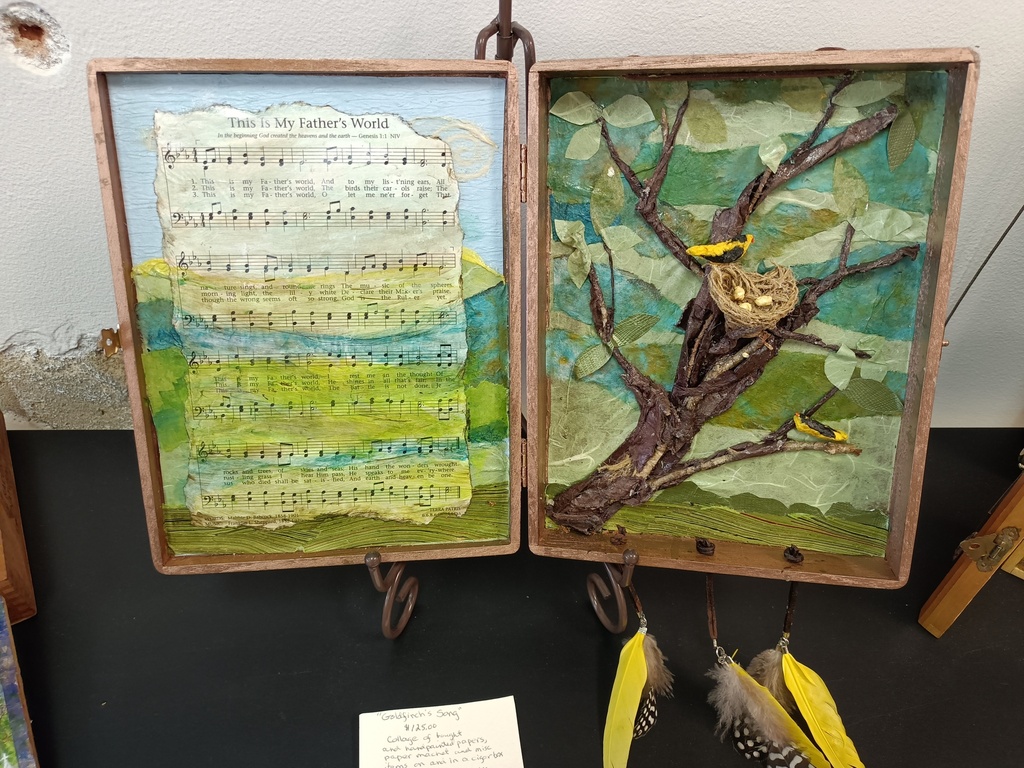 This Is My Father's World
In the beginning God created the heavens and the earth — Genesis 1:1 NIV
1. This is my Fa - ther's world, And to my lis - t'ning ears, All
2. This is my Fa - ther's world, The birds their car - ols raise; The
3. This is my Fa - ther's world, O let me ne'er for - get That
na - ture sings, and round me rings The mu - sic of the spheres.
morn - ing light, the lil - y white De - clare their Mak - er's praise.
though the wrong seems oft so strong, God is the Rul - er yet.
This is my Fa - ther's world, I rest me in the thought Of
This is my Fa - ther's world, He shines in all that's fair; In the
This is my Fa - ther's world, The bat - tle is not done,
rocks and trees, of skies and seas, His hand the won - ders wrought.
rust - ling grass I hear Him pass, He speaks to me ev - 'ry - where.
sus who died shall be sat - is - fied, And earth and heav'n be one.
TERRA PATRIS
"Goldfinch's Song"
$125.00
Collage of bought
and handpainted papers,
paper maché and misc
items on and in a cigar box